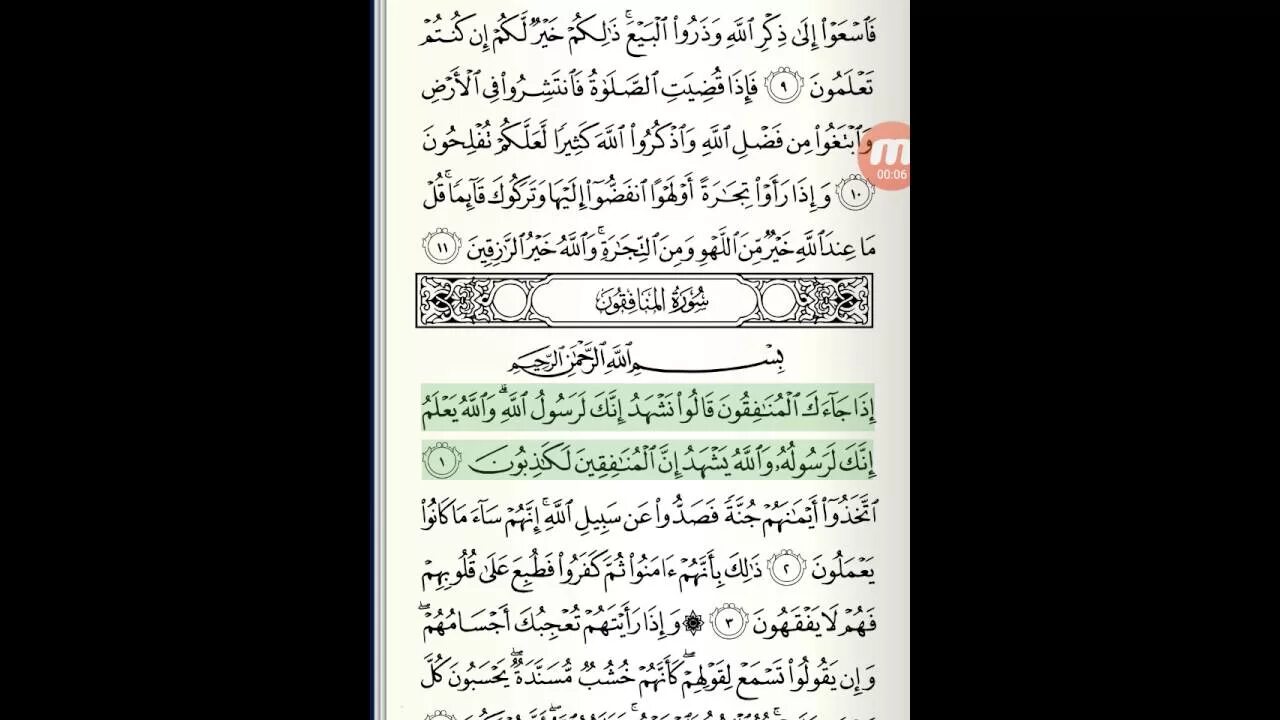 فَٱسْعَوْا۟ إِلَىٰ ذِكْرِ ٱللَّهِ وَذَرُوا۟ ٱلْبَيْعَ ۚ ذَٰلِكُمْ خَيْرٌ لَّكُمْ إِن كُنتُمْ
تَعْلَمُونَ ٩ فَإِذَا قُضِيَتِ ٱلصَّلَوٰةُ فَٱنتَشِرُوا۟ فِى ٱلْأَرْضِ
وَٱبْتَغُوا۟ مِن فَضْلِ ٱللَّهِ وَٱذْكُرُوا۟ ٱللَّهَ كَثِيرًا لَّعَلَّكُمْ تُفْلِحُونَ
00:06
١٠ وَإِذَا رَأَوْا۟ تِجَٰرَةً أَوْ لَهْوًا ٱنفَضُّوٓا۟ إِلَيْهَا وَتَرَكُوكَ قَآئِمًا ۚ قُلْ
مَا عِندَ ٱللَّهِ خَيْرٌ مِّنَ ٱللَّهْوِ وَمِنَ ٱلتِّجَٰرَةِ ۚ وَٱللَّهُ خَيْرُ ٱلرَّٰزِقِينَ ١١
سُورَةُ المُنَافِقُونَ
بِسْمِ ٱللَّهِ ٱلرَّحْمَٰنِ ٱلرَّحِيمِ
إِذَا جَآءَكَ ٱلْمُنَٰفِقُونَ قَالُوا۟ نَشْهَدُ إِنَّكَ لَرَسُولُ ٱللَّهِ ۗ وَٱللَّهُ يَعْلَمُ
إِنَّكَ لَرَسُولُهُۥ وَٱللَّهُ يَشْهَدُ إِنَّ ٱلْمُنَٰفِقِينَ لَكَٰذِبُونَ ١
ٱتَّخَذُوٓا۟ أَيْمَٰنَهُمْ جُنَّةً فَصَدُّوا۟ عَن سَبِيلِ ٱللَّهِ ۚ إِنَّهُمْ سَآءَ مَا كَانُوا۟
يَعْمَلُونَ ٢ ذَٰلِكَ بِأَنَّهُمْ ءَامَنُوا۟ ثُمَّ كَفَرُوا۟ فَطُبِعَ عَلَىٰ قُلُوبِهِمْ
فَهُمْ لَا يَفْقَهُونَ ٣ ۞ وَإِذَا رَأَيْتَهُمْ تُعْجِبُكَ أَجْسَامُهُمْ ۖ
وَإِن يَقُولُوا۟ تَسْمَعْ لِقَوْلِهِمْ ۖ كَأَنَّهُمْ خُشُبٌ مُّسَنَّدَةٌ ۖ يَحْسَبُونَ كُلَّ